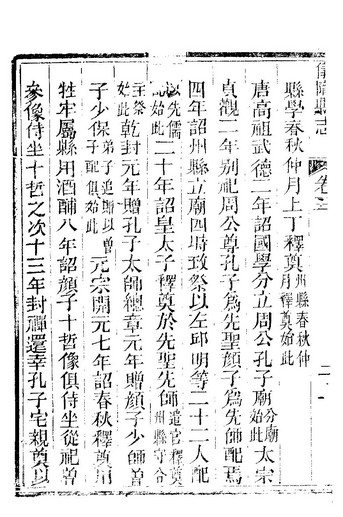 縣志 卷三
縣學春秋仲月上丁釋奠州縣春秋仲月釋奠始此
唐高祖武德二年詔國學分立周公孔子廟分廟始此太宗
貞觀二年別祀周公尊孔子爲先聖顏子爲先師配焉
四年詔州縣立廟四時致祭以左邱明等二十二人配
以先儒始此二十年詔皇太子釋奠於先聖先師遣官釋奠州縣守令
主祭始此乾封元年贈孔子太師總章元年贈顏子少師曾
子少保弟子追贈以曾子配俱始此元宗開元七年詔春秋釋奠用
牲牢屬縣用酒脯八年詔顏子十哲像俱侍坐從祀曾
參像侍坐十哲之次十三年封禪還幸孔子宅親奠以